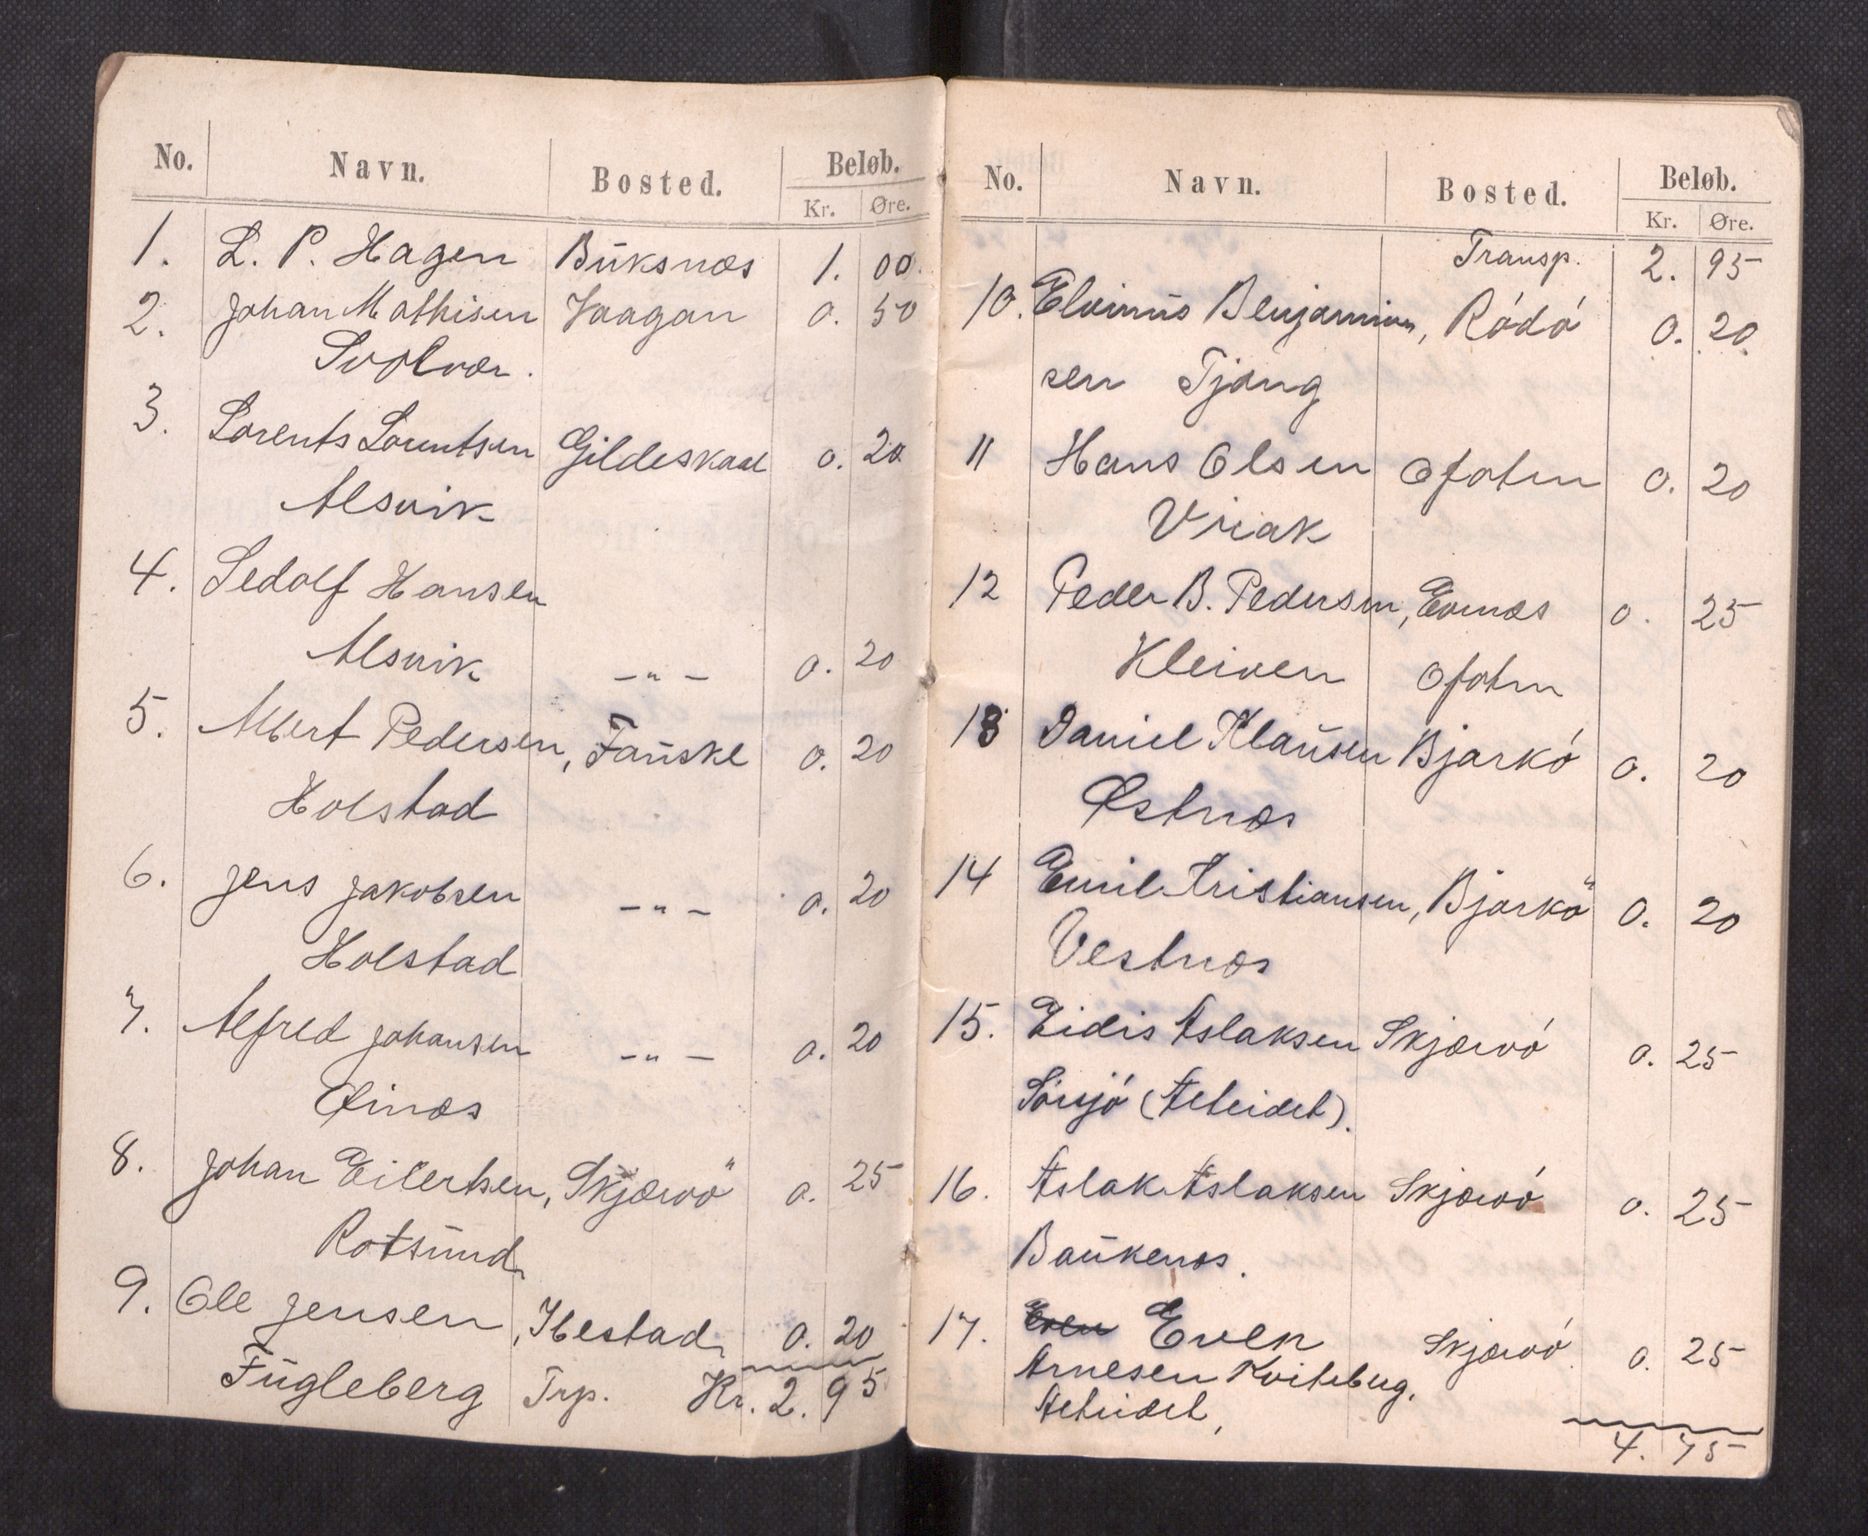 No. Navn. Bosted. Beløb.
Kr. Øre.
1. L. P. Hagen Buksnæs 1. 00.
2. Johan Mathisen Vaagan 0. 50
Svolvær.
3. Lorents Lorentsen Gildeskaal 0. 20
Alsvik
4. Sedolf Hansen
Alsvik -"- 0. 20
5. Albert Pedersen, Fauske 0. 20
Holstad
6. Jens Jakobsen -"- 0. 20
Holstad
7. Alfred Johansen -"- 0. 20
Øinæs
8. Johan Eilertsen, Skjærvö 0. 25
Rotsund
9. Ole Jensen, Ibestad 0. 20
Fugleberg Trp. Kr. 2. 95
No. Navn. Bosted. Beløb.
Kr. Øre.
Transp. 2. 95
10. Elvinus Benjamin, Ródó 0. 20
sen Tjong
11 Hans Olsen Ofoten 0. 20
Vriak
12 Peder B. Pedersen, Evenæs 0. 25
Kleiven Ofoten
13 Daniel Klausen Bjarkó 0. 20
Østnæs
14 Emil Kristiansen, Bjarkö 0. 20
Vestnæs
15. Eidis Aslaksen Skjærvó 0. 25
Sörsjó (Aeleidet).
16. Aslak Aslaksen Skjærvó 0. 25
Baukenæs.
17. Even Even Skjærvó 0. 25
Arnesen Kviteberg,
Aeleidet,
4. 75